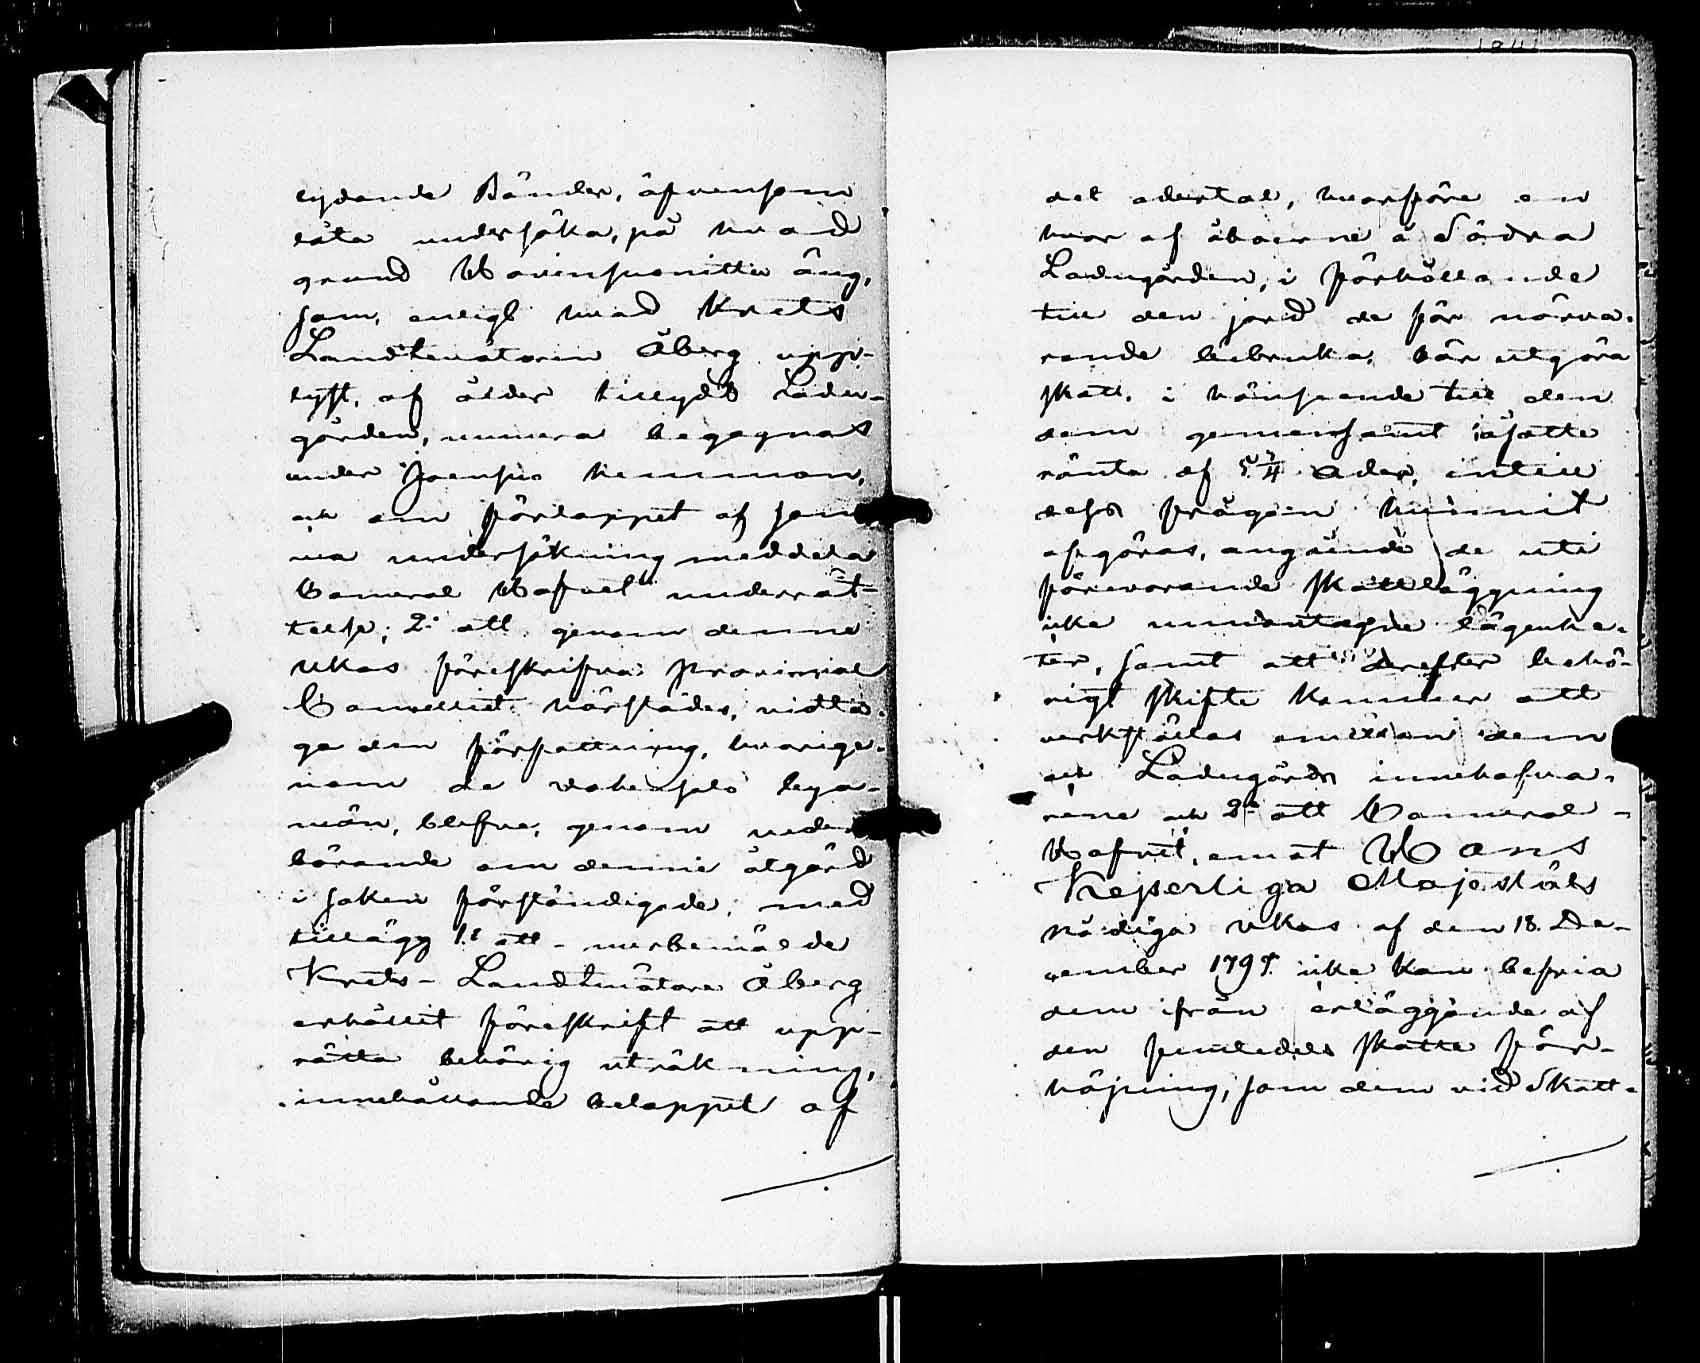 lydande Bönder, äfvensom
låta undersöka, på hvad
grund Hovinsuonitta äng,
som, enligt hvad Krets
Landtmätaren Åberg upp-
lyst, af ålder tillydt Ladu-
gården, numera begagnas
under Joensu hemman,
och om förloppet af sam-
ma undersökning meddela
Cameral Hofvet underrät-
telse; 2:o att genom denne
Ukas föreskrifva Provincial
Cancelliet härstädes, vidta-
ga den författning, hvarige-
nom de
män, blefve, genom veder-
börande om denne åtgärd
i saken förständigade; med
tillägg 1:o att merbemälde
Krets-Landtmätare Åberg
erhållit föreskrift att upp-
rätta behörig uträkning,
innehållande beloppet af
det odertal, hvarföre en
hvar af åboerne å Södra
Ladugården, i förhållande
till den jord de för närva-
rande bebruka, bör utgöra
skatt, i hänseende till den
dem gemensamt åsatte
ränta af oder, intill
dess frågan hunnit
afgöras, angående de uti
förevarande skattläggning
icke undantagne lägenhe-
ter, samt att derefter behö-
rigt skifte kommer att
verkställas emellan dem
och Ladugårds innehafva-
rene och 2:o att Cameral-
Hofvet, emot Hans
Kejserliga Majestäts
nådiga Ukas af den 18. De-
cember 1797. icke kan befria
dem ifrån erläggande af
den femtedels skatte för-
höjning, som dem vid Skatt-